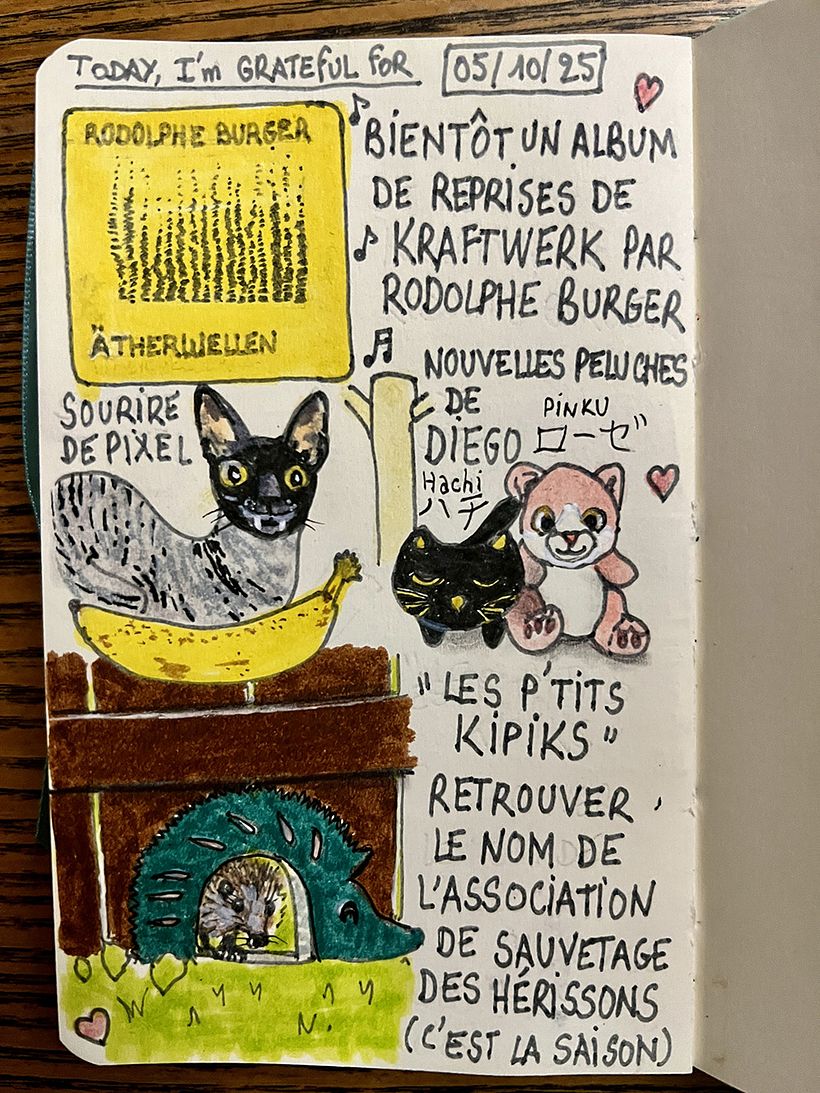 TODAY, I'm GRATEFUL FOR 05/10/25
RODOLPHE BURGER
ÄTHERWELLEN
BIENTÔT UN ALBUM
DE REPRISES DE
KRAFTWERK PAR
RODOLPHE BURGER
SOURIRE
DE PIXEL
NOUVELLES PELUCHES
DE
DIEGO
PINKU
ローゼ
Hachi
ハチ
"LES P'TITS
KIPIKS"
RETROUVER
LE NOM DE
L'ASSOCIATION
DE SAUVETAGE
DES HÉRISSONS
(C'EST LA SAISON)